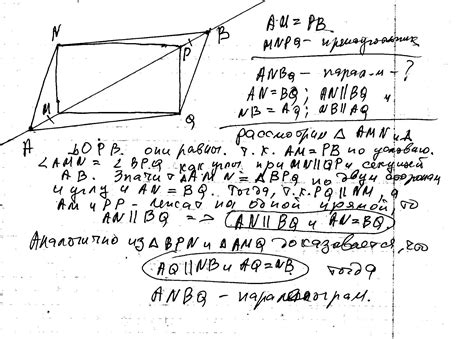 N
B
P
M
Q
A
AM = PB
MNPQ - прямоугольник
ANBQ - парал-м - ?
AN = BQ; AN || BQ и
NB = AQ; NB || AQ
рассмотрим △ AMN и △
QPB. они равны. т.к. AM = PB по условию.
∠AMN = ∠BPQ как углы при MN || QP и секущей
AB. Значит △AMN = △BPQ по двум сторонам
и углу и AN = BQ. Тогда, т.к. PQ || NM, а
AM и PP - лежат на одной прямой, то
AN || BQ => AN || BQ и AN = BQ
Аналогично из △BPN и △AMQ доказывается, что
AQ || NB и AQ = NB тогда
ANBQ - параллелограм.